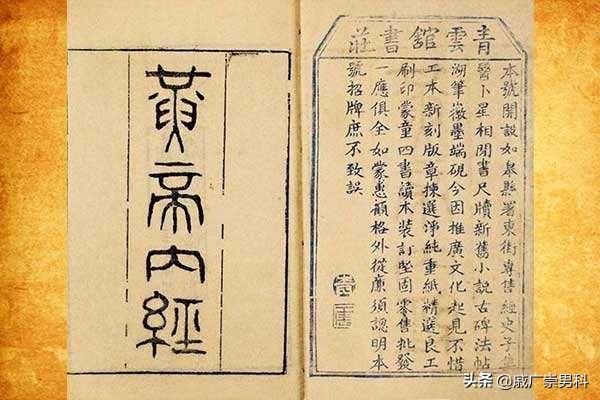 青雲舘書莊
本號開設如皋縣署東街專售經史子集
醫卜星相閒書尺牘新舊小說古碑法帖
湖筆徽墨端硯今因推廣文化起見不惜
工本新刻版章揀選淨純重紙精選良工
刷印蒙童四書讀本裝訂堅固零售批發
一應俱全如蒙惠顧格外從廉須認明本
號招牌庶不致誤
黃帝內經
头条 @戚广崇男科